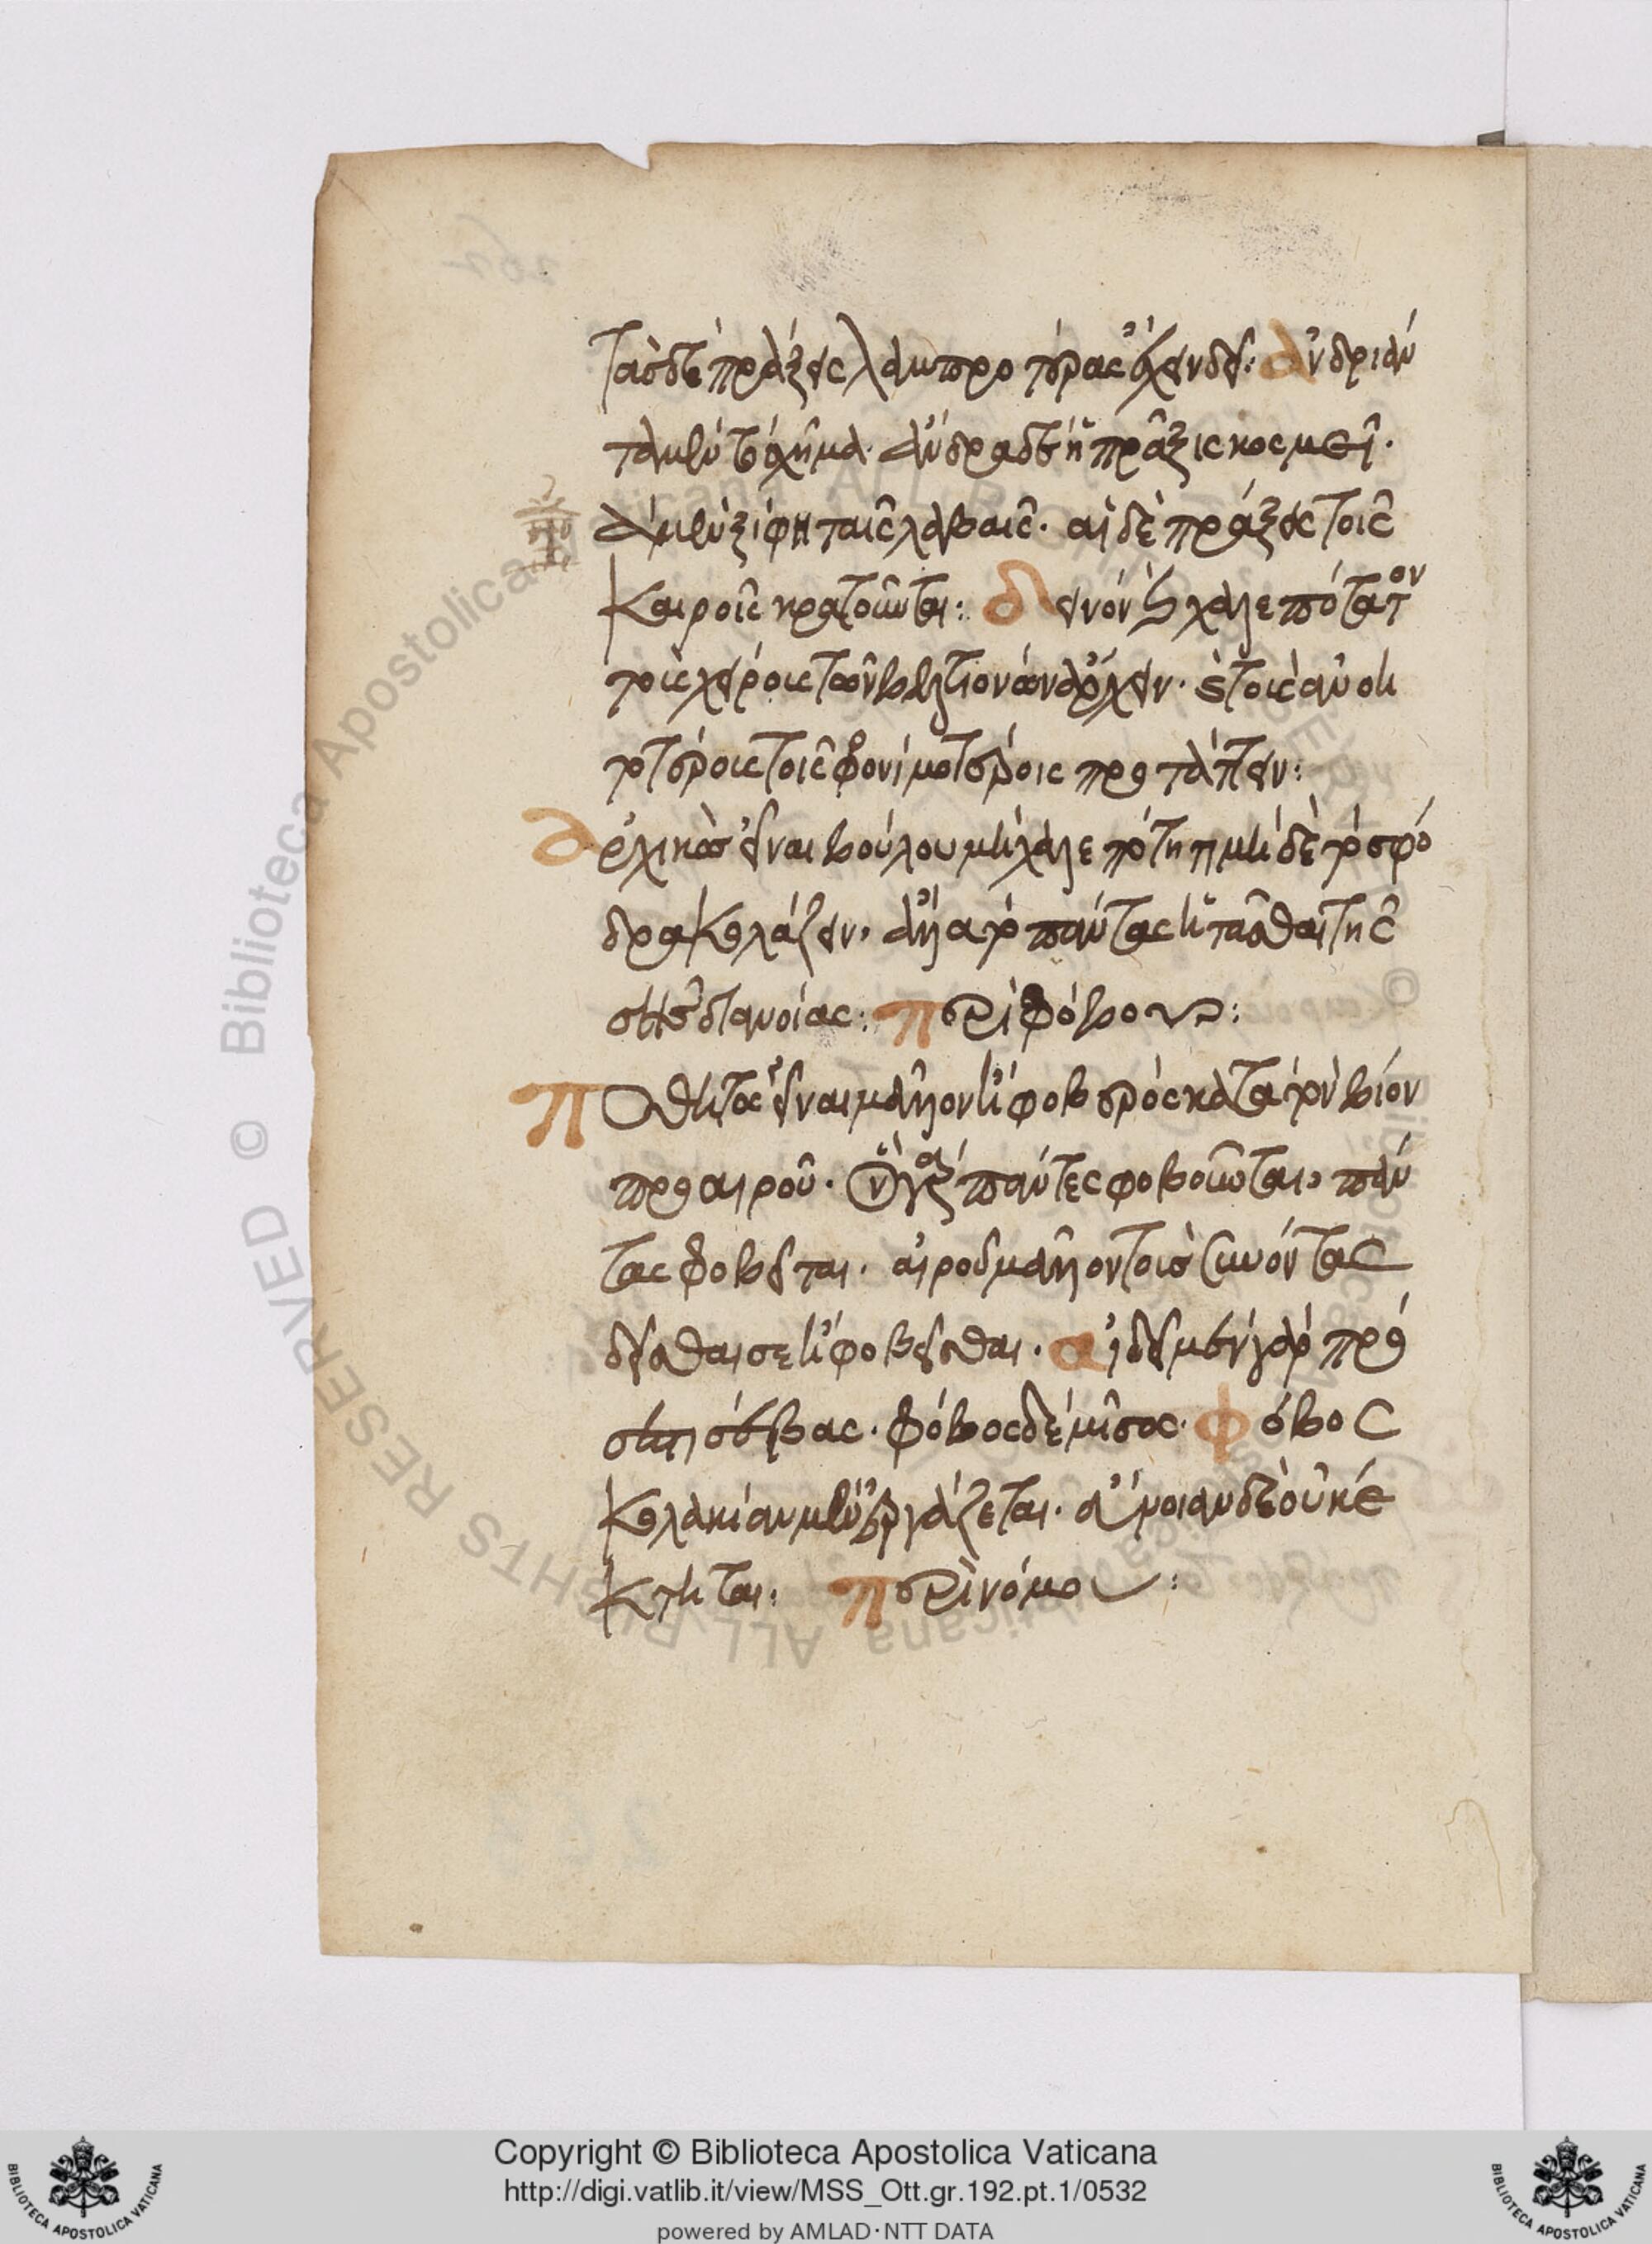 τὰς δὲ πράξεις λαμπροτέρας ἔχειν δεῖ· ἀνδριάν
τα μὲν τὸ σχῆμα· ἄνδρα δὲ ἡ πρᾶξις κοσμεῖ·
τὰ μὲν ξίφη ταῖς λαβαῖς· αἱ δὲ πράξεις τοῖς
καιροῖς κρατοῦνται: δεινόν καὶ χαλεπότατον
τοὺς χείρους τῶν βελτιόνων ἄρχειν· καὶ τοὺς ἀνοη
τοτέρους τοῖς φρονιμοτέροις προστάττειν:
ἀρχικὸς εἶναι βούλου μὴ χαλεπότητι μὴ δὲ τῷ σφό
δρα κολάζειν· ἀλλὰ τῷ πάντας ἡττᾶσθαι τῆς
σῆς διανοίας: περὶ φόβου:
ποθητὸς εἶναι μᾶλλον ἢ φοβερὸς κατὰ τὸν βίον
προαιροῦ· ὃν γὰρ πάντες φοβοῦνται, πάν
τας φοβεῖται· αἱροῦ μᾶλλον τοὺς συνόντας
αἰδεῖσθαί σε ἢ φοβεῖσθαι· αἰδεῖ μὲν γὰρ πρό
σεστι σέβας· φόβος δὲ μῖσος· φόβος
κολακίαν μὲν ἐργάζεται· εὔνοιαν δὲ οὐ κέ
κτηται: περὶ νόμου:
Copyright © Biblioteca Apostolica Vaticana
http://digi.vatlib.it/view/MSS_Ott.gr.192.pt.1/0532
powered by AMLAD·NTT DATA